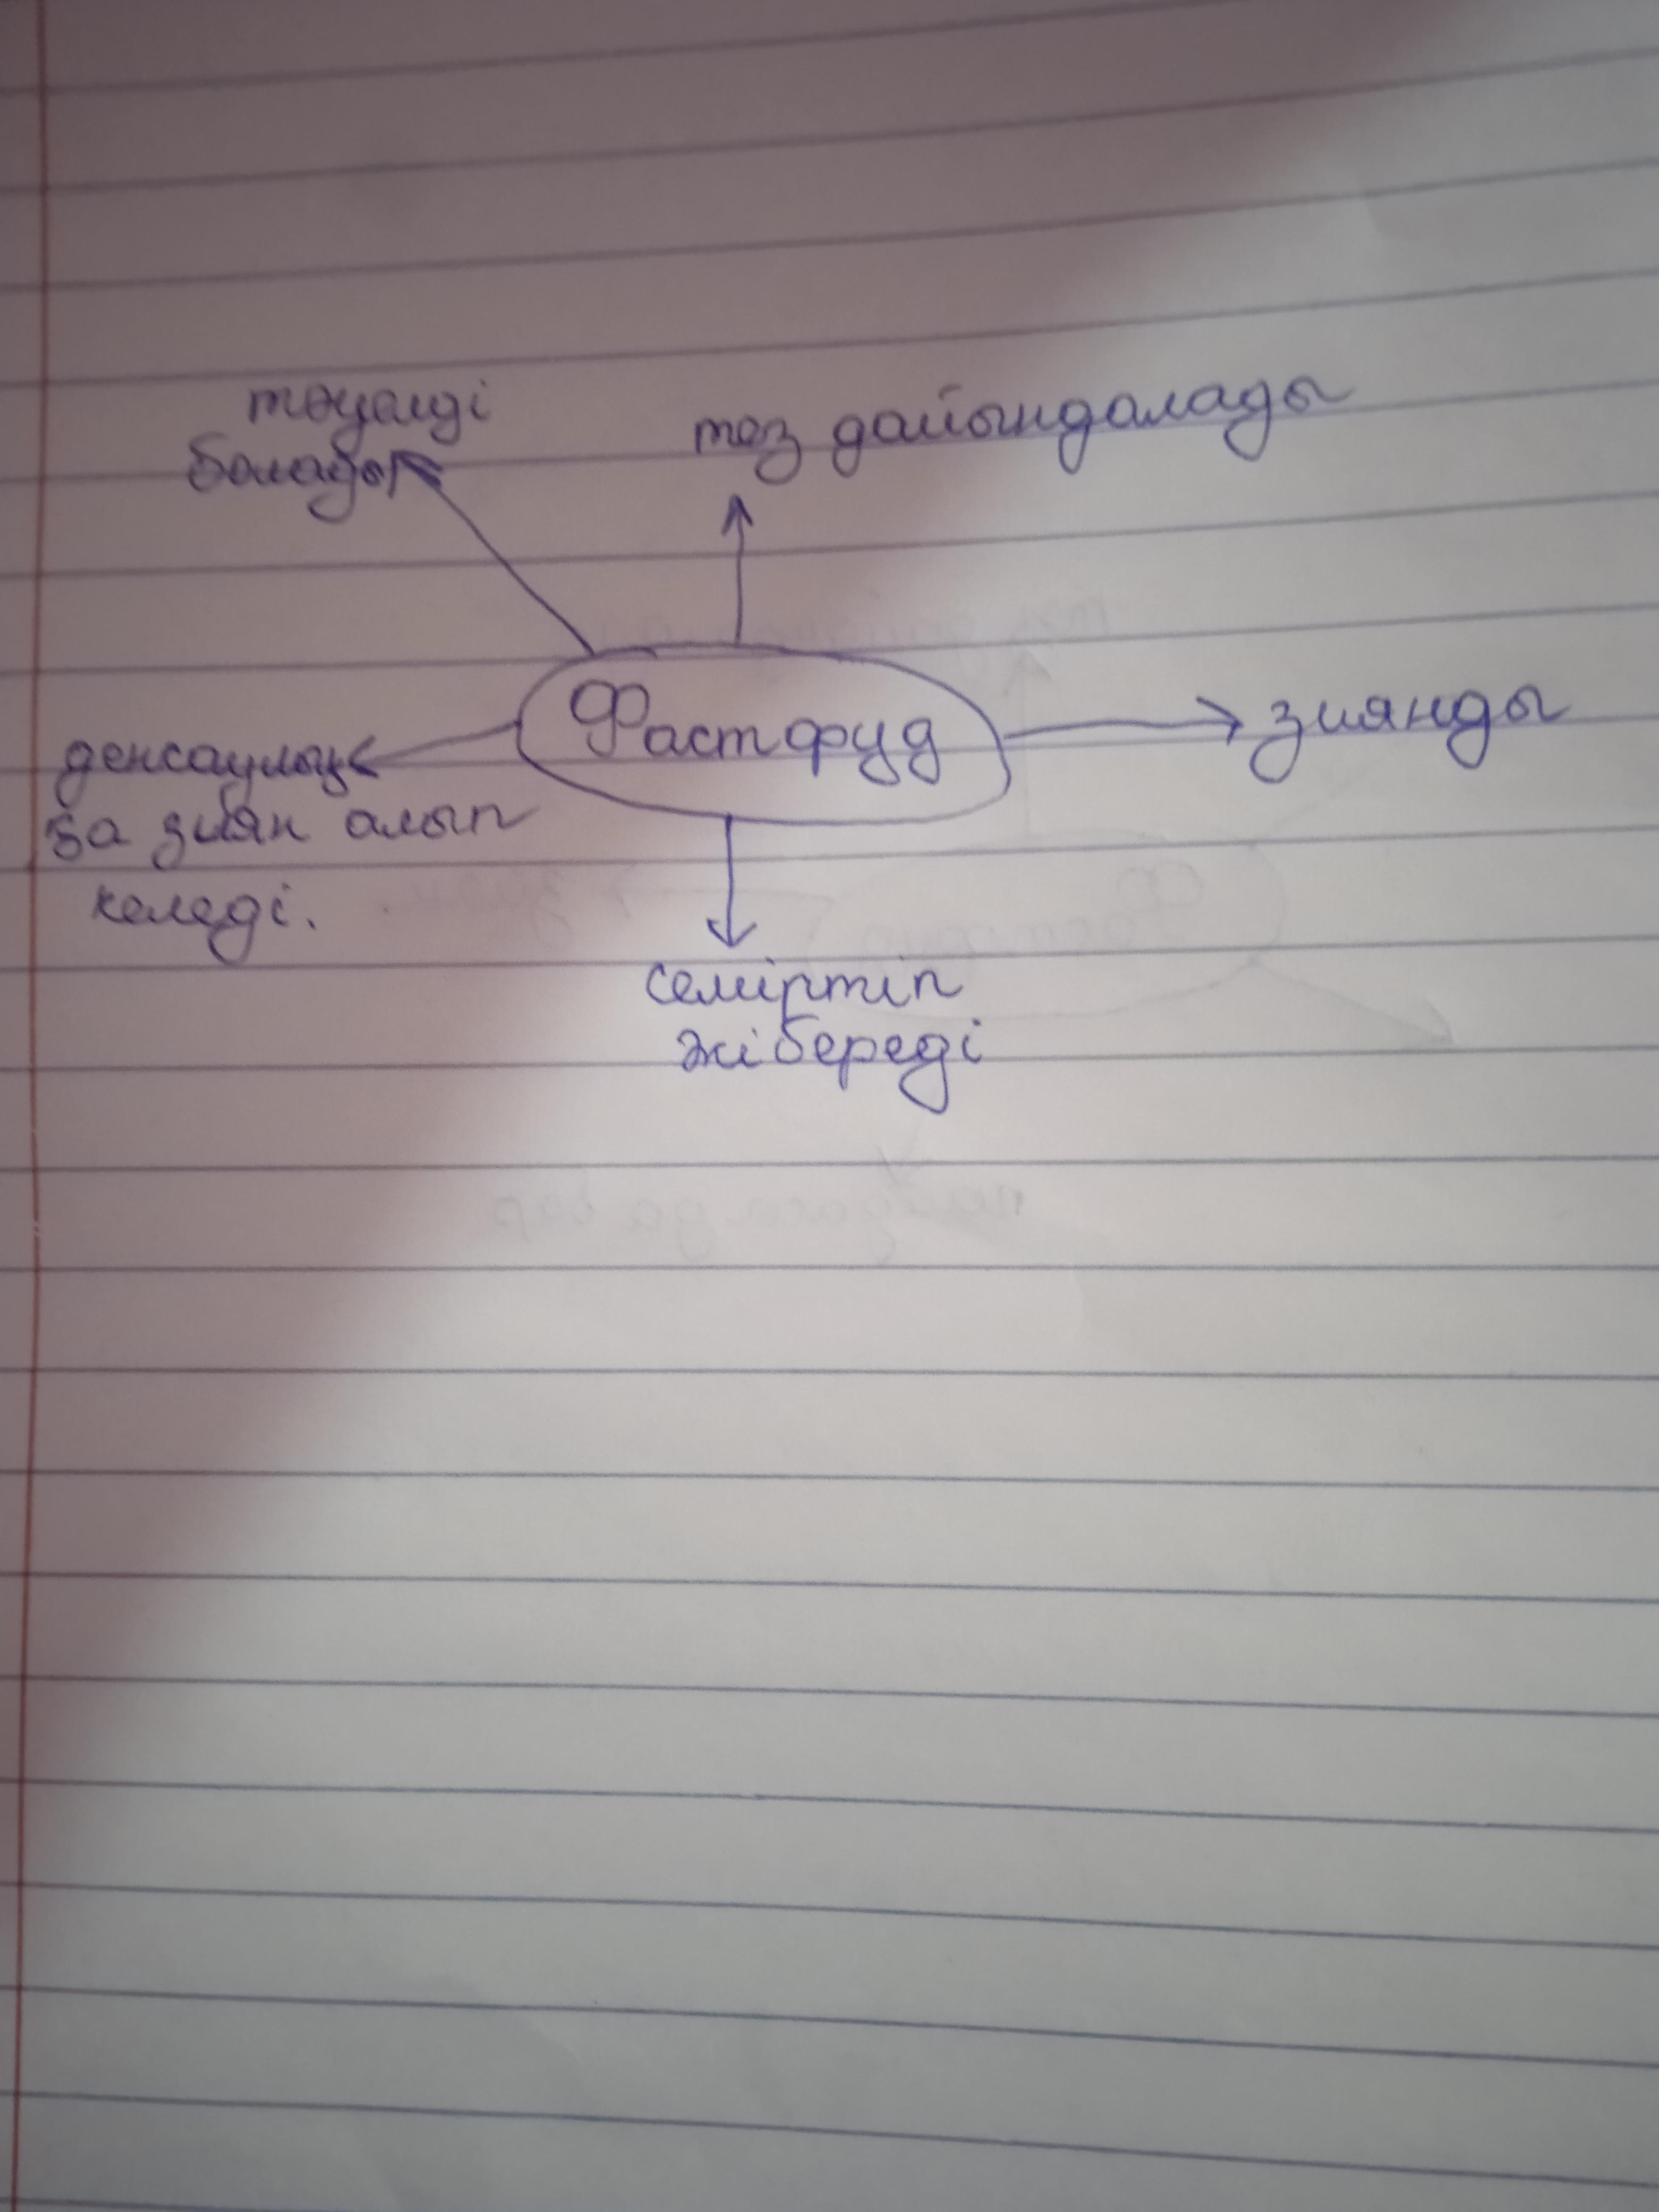 тәуелді
болады
тез дайындалады
Фастфуд
зиянды
денсаулық
ға зиян алып
келеді.
семіртіп
жібереді